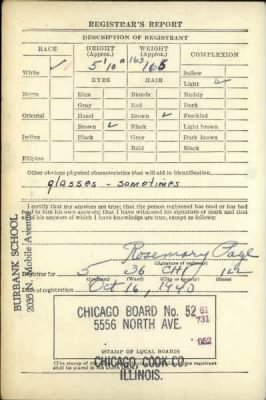 REGISTRAR'S REPORT
DESCRIPTION OF REGISTRANT
RACE HEIGHT (Approx.) WEIGHT (Approx.) COMPLEXION
5' 10" 163 165
White ✓ EYES HAIR Sallow
Light ✓
Negro Blue Blonde Ruddy
Gray Red Dark
Oriental Hazel Brown ✓ Freckled
Brown ✓ Black Light brown
Indian Black Gray Dark brown
Bald Black
Filipino
Other obvious physical characteristics that will aid in identification
glasses - sometimes
I certify that my answers are true; that the person registered has read or has had
read to him his own answers; that I have witnessed his signature or mark and that
all of his answers of which I have knowledge are true, except as follows:
BURBANK SCHOOL
2035 N. Mobile Avenue
Rosemary Page
(Signature of registrar)
Registrar for 5 36 CHI Ill
(Precinct) (Ward) (City or county) (State)
Date of registration Oct 16, 1940
CHICAGO BOARD No. 52
5556 NORTH AVE.
61
731
052
STAMP OF LOCAL BOARD
CHICAGO, COOK CO.
ILLINOIS.